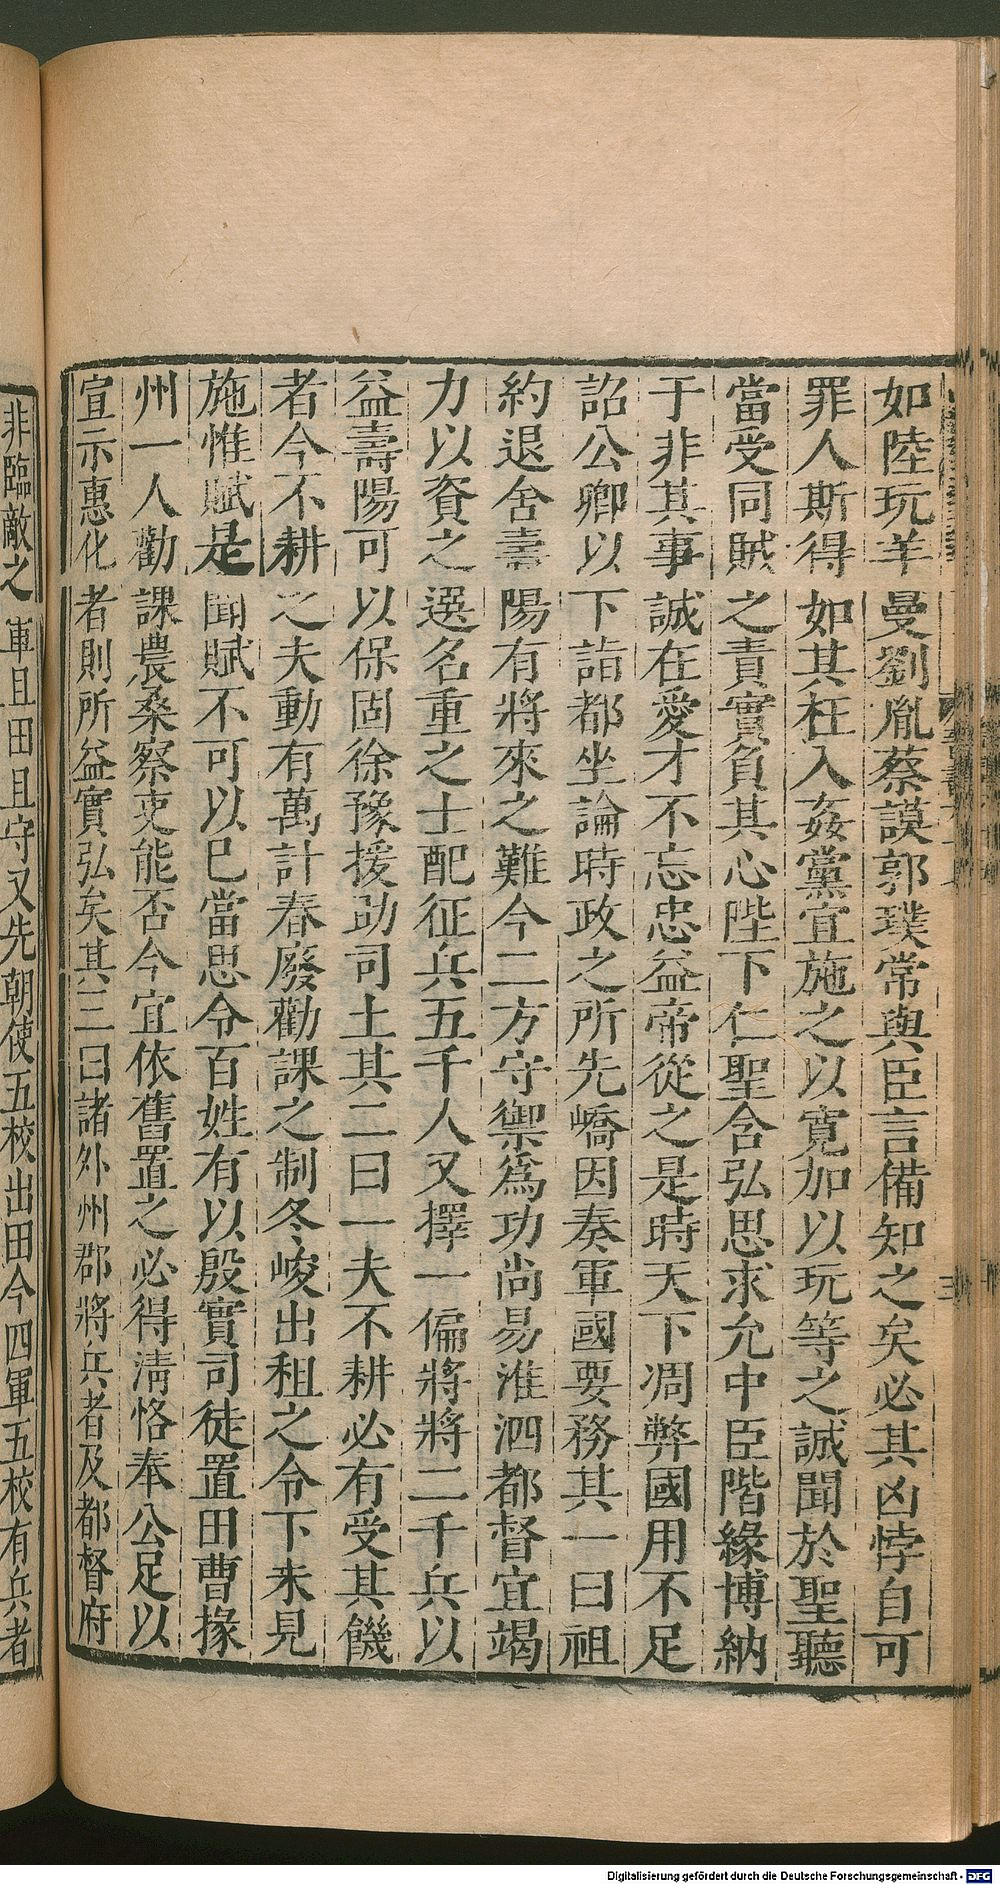 如陸玩羊曼劉胤蔡謨郭璞常與臣言備知之矣必其凶悖自可
罪人斯得如其枉入姦黨宜施之以寬加以玩等之誠聞於聖聽
當受同賊之責實負其心陛下仁聖含弘思求允中臣階緣博納
于非其事誠在愛才不忘忠益帝從之是時天下凋弊國用不足
詔公卿以下詣都坐論時政之所先嶠因奏軍國要務其一曰祖
約退舍壽陽有將來之難今二方守禦爲功尚易淮泗都督宜竭
力以資之選名重之士配征兵五千人又擇一偏將將二千兵以
益壽陽可以保固徐豫援助司土其二曰一夫不耕必有受其饑
者今不耕之夫動有萬計春廢勸課之制冬峻出租之令下未見
施惟賦是聞賦不可以已當思令百姓有以殷實司徒置田曹掾
州一人勸課農桑察吏能否今宜依舊置之必得清恪奉公足以
宣示惠化者則所益實弘矣其三曰諸外州郡將兵者及都督府
非臨敵之軍且田且守又先朝使五校出田今四軍五校有兵者
Digitalisierung gefördert durch die Deutsche Forschungsgemeinschaft - DFG